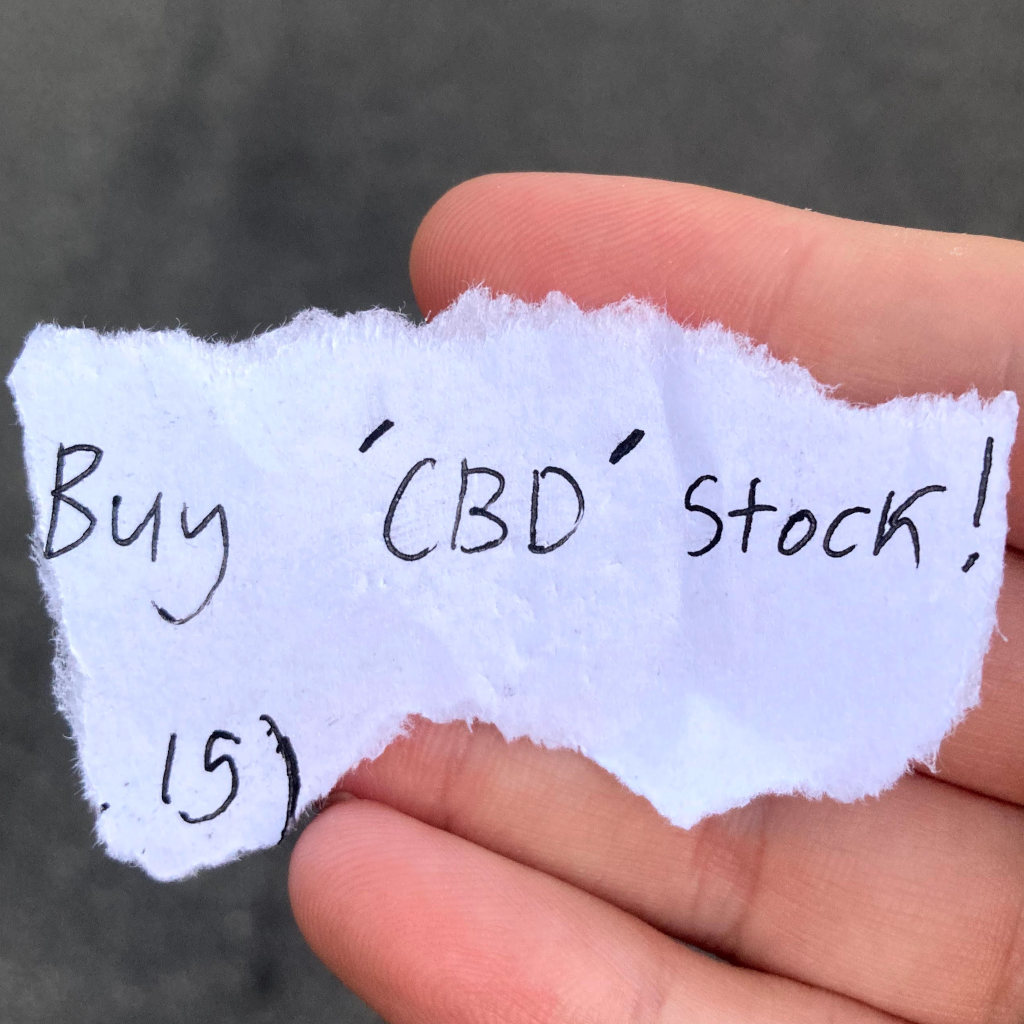 Buy 'CBD' Stock!
. 15)